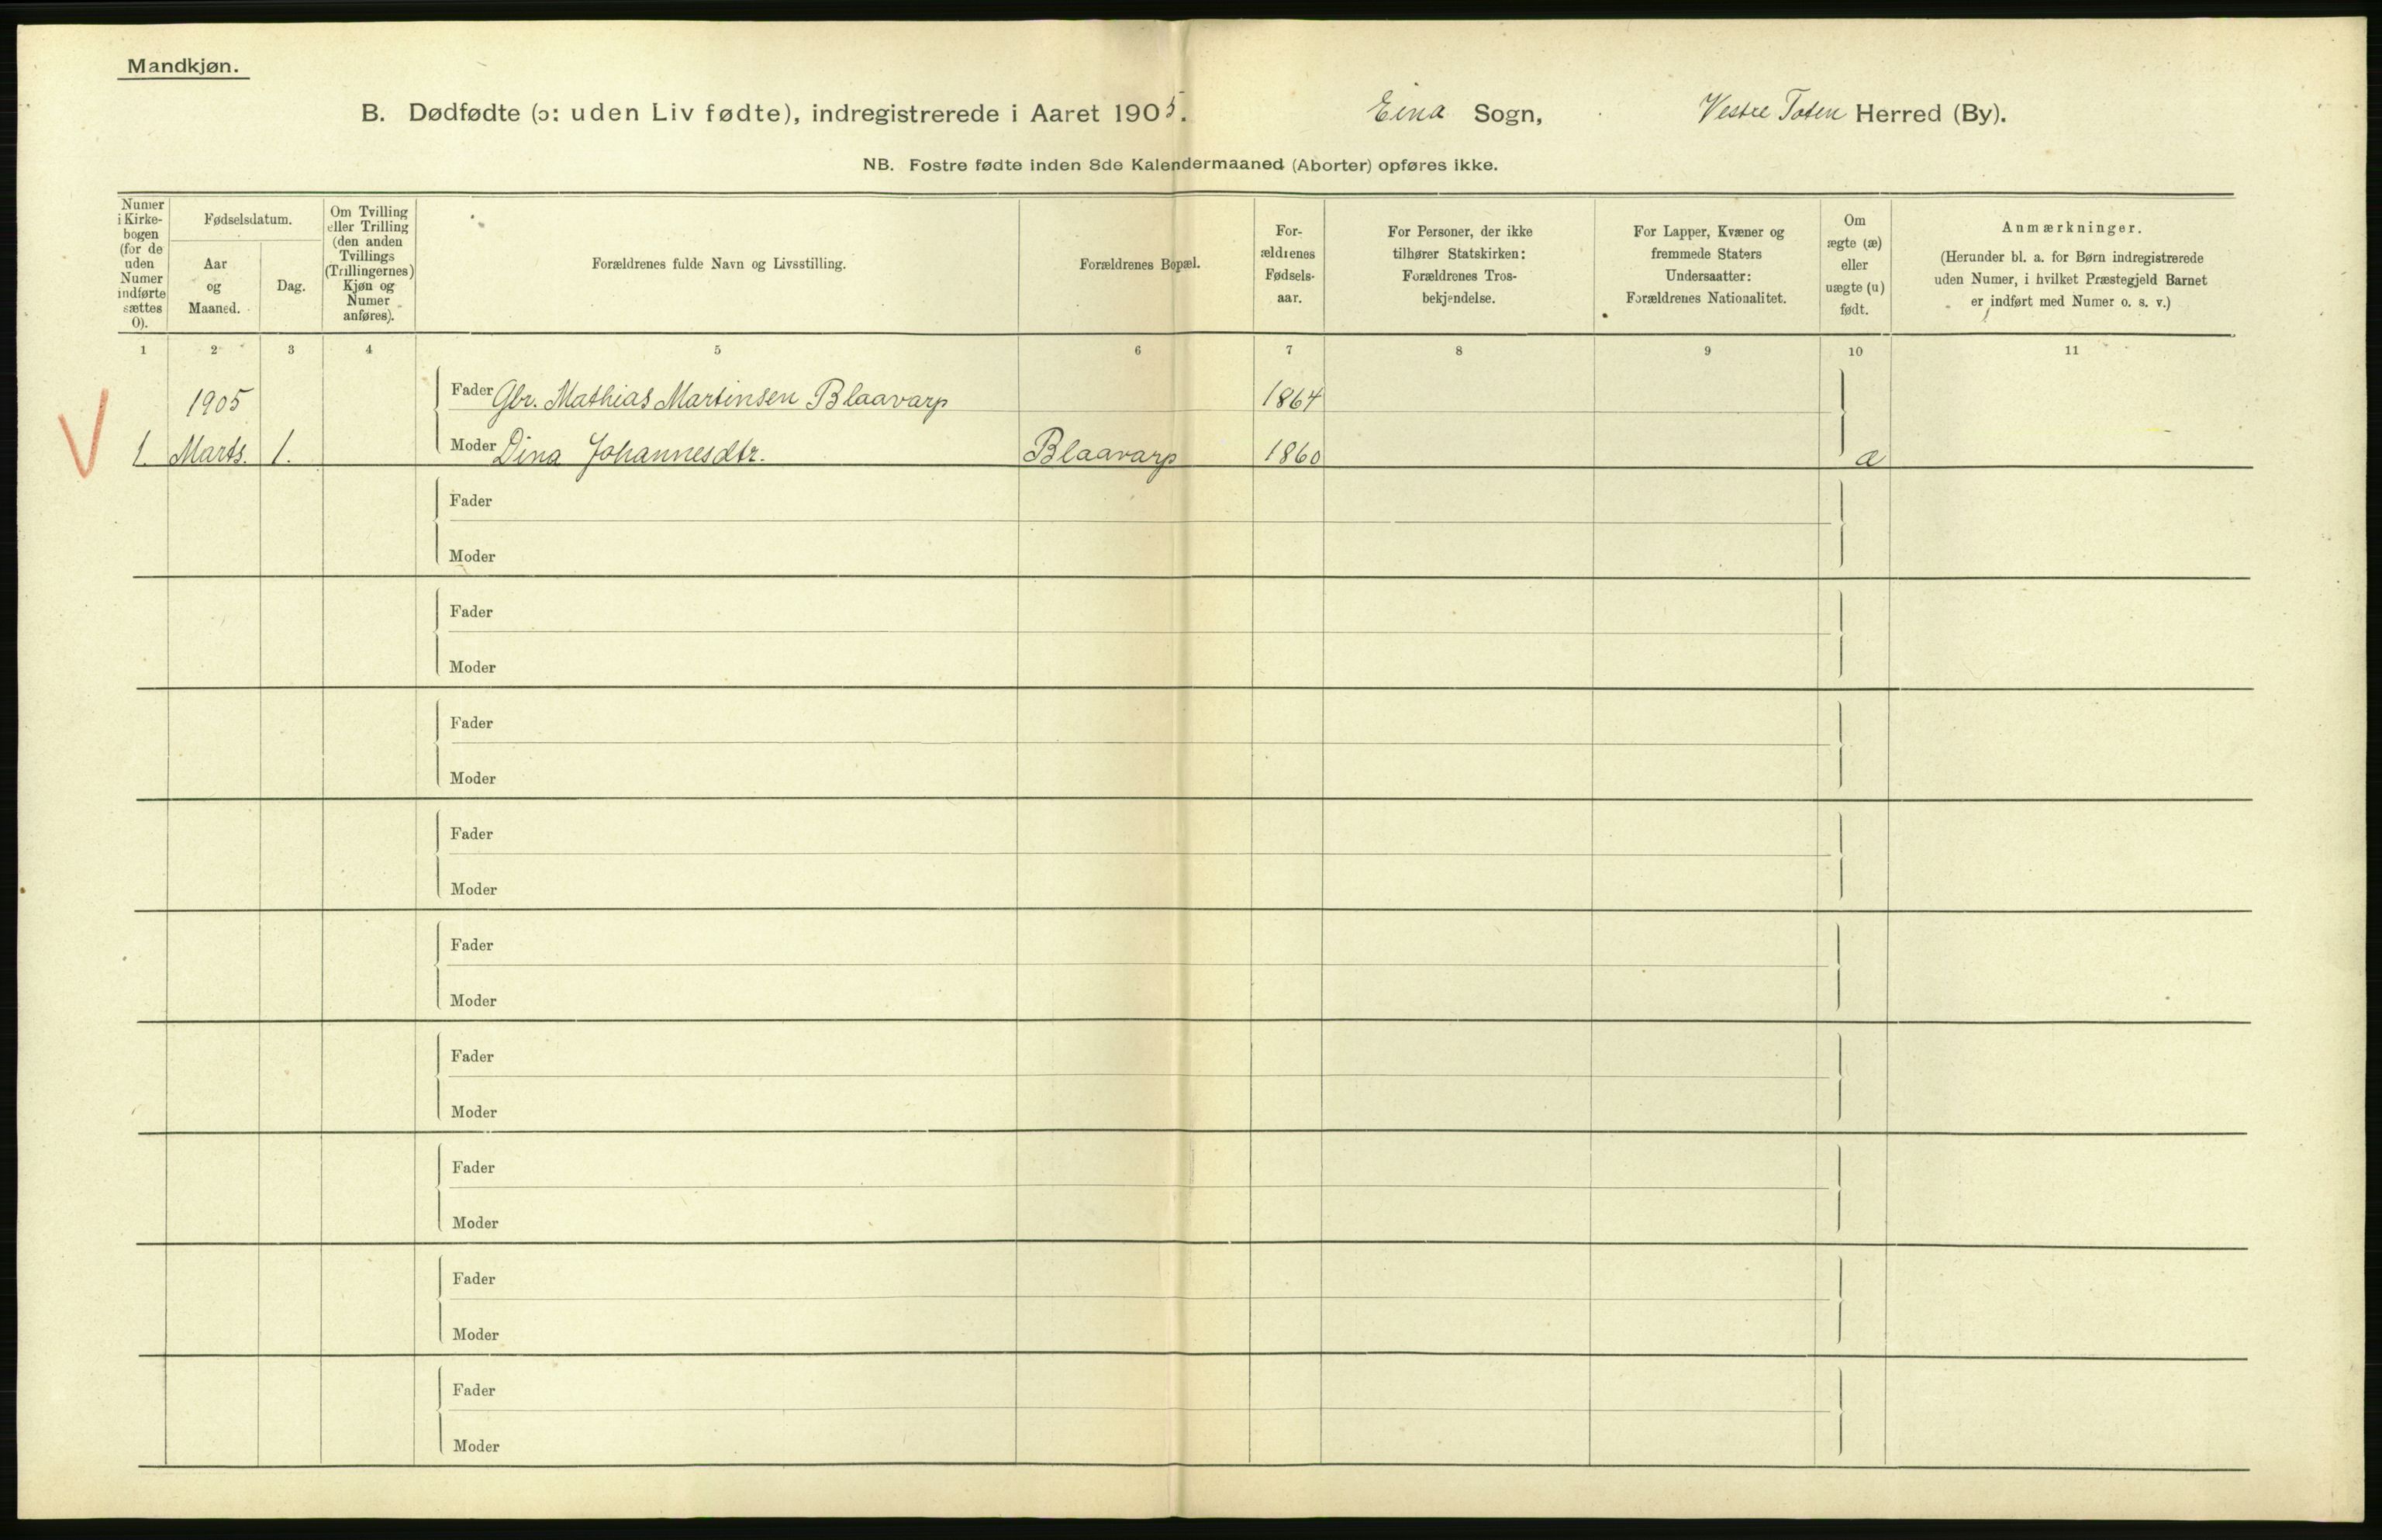 Mandkjøn.
B. Dødfødte (ɔ: uden Liv fødte), indregistrerede i Aaret 1905. Eina Sogn, Vestre Toten Herred (By).
NB. Fostre fødte inden 8de Kalendermaaned (Aborter) opføres ikke.
Numer
i Kirke-
bogen
(for de
uden
Numer
indførte
sættes
0).
Fødselsdatum.
Aar
og
Maaned.
Dag.
Om Tvilling
eller Trilling
(den anden
Tvillings
(Trillingernes)
Kjøn og
Numer
anføres).
Forældrenes fulde Navn og Livsstilling.
Forældrenes Bopæl.
For-
ældrenes
Fødsels-
aar.
For Personer, der ikke
tilhører Statskirken:
Forældrenes Tros-
bekjendelse.
For Lapper, Kvæner og
fremmede Staters
Undersaatter:
Forældrenes Nationalitet.
Om
ægte (æ)
eller
uægte (u)
født.
Anmærkninger.
(Herunder bl. a. for Børn indregistrerede
uden Numer, i hvilket Præstegjeld Barnet
er indført med Numer o. s. v.)
1 2 3 4 5 6 7 8 9 10 11
1905 Fader Gbr. Mathias Martinsen Blaavarp 1864
1. Marts. 1. Moder Dina Johannesdtr. Blaavarp 1860 æ
Fader
Moder
Fader
Moder
Fader
Moder
Fader
Moder
Fader
Moder
Fader
Moder
Fader
Moder
Fader
Moder
Fader
Moder